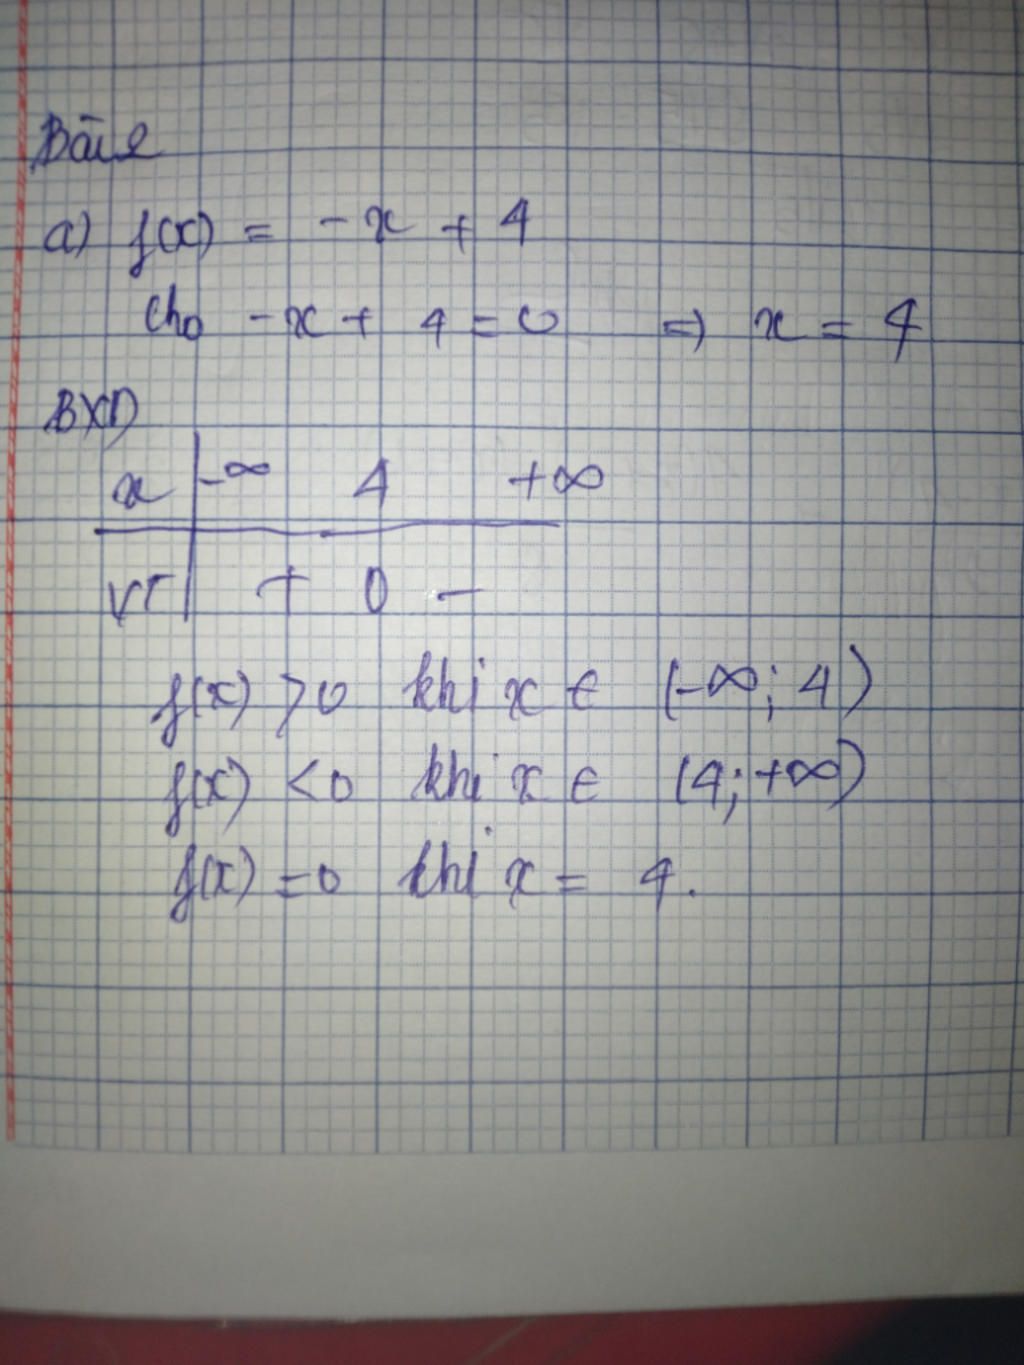 Bài 2
a) f(x) = -x + 4
cho -x + 4 = 0 => x = 4
BXD
x -∞ 4 +∞
VT + 0 -
f(x) > 0 khi x ∈ (-∞; 4)
f(x) < 0 khi x ∈ (4; +∞)
f(x) = 0 khi x = 4.